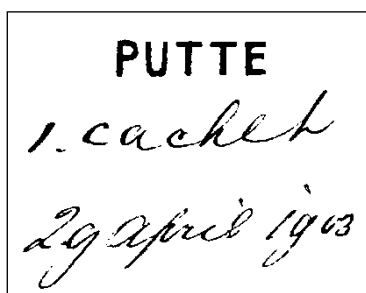 PUTTE
1. cachet
29 april 1903